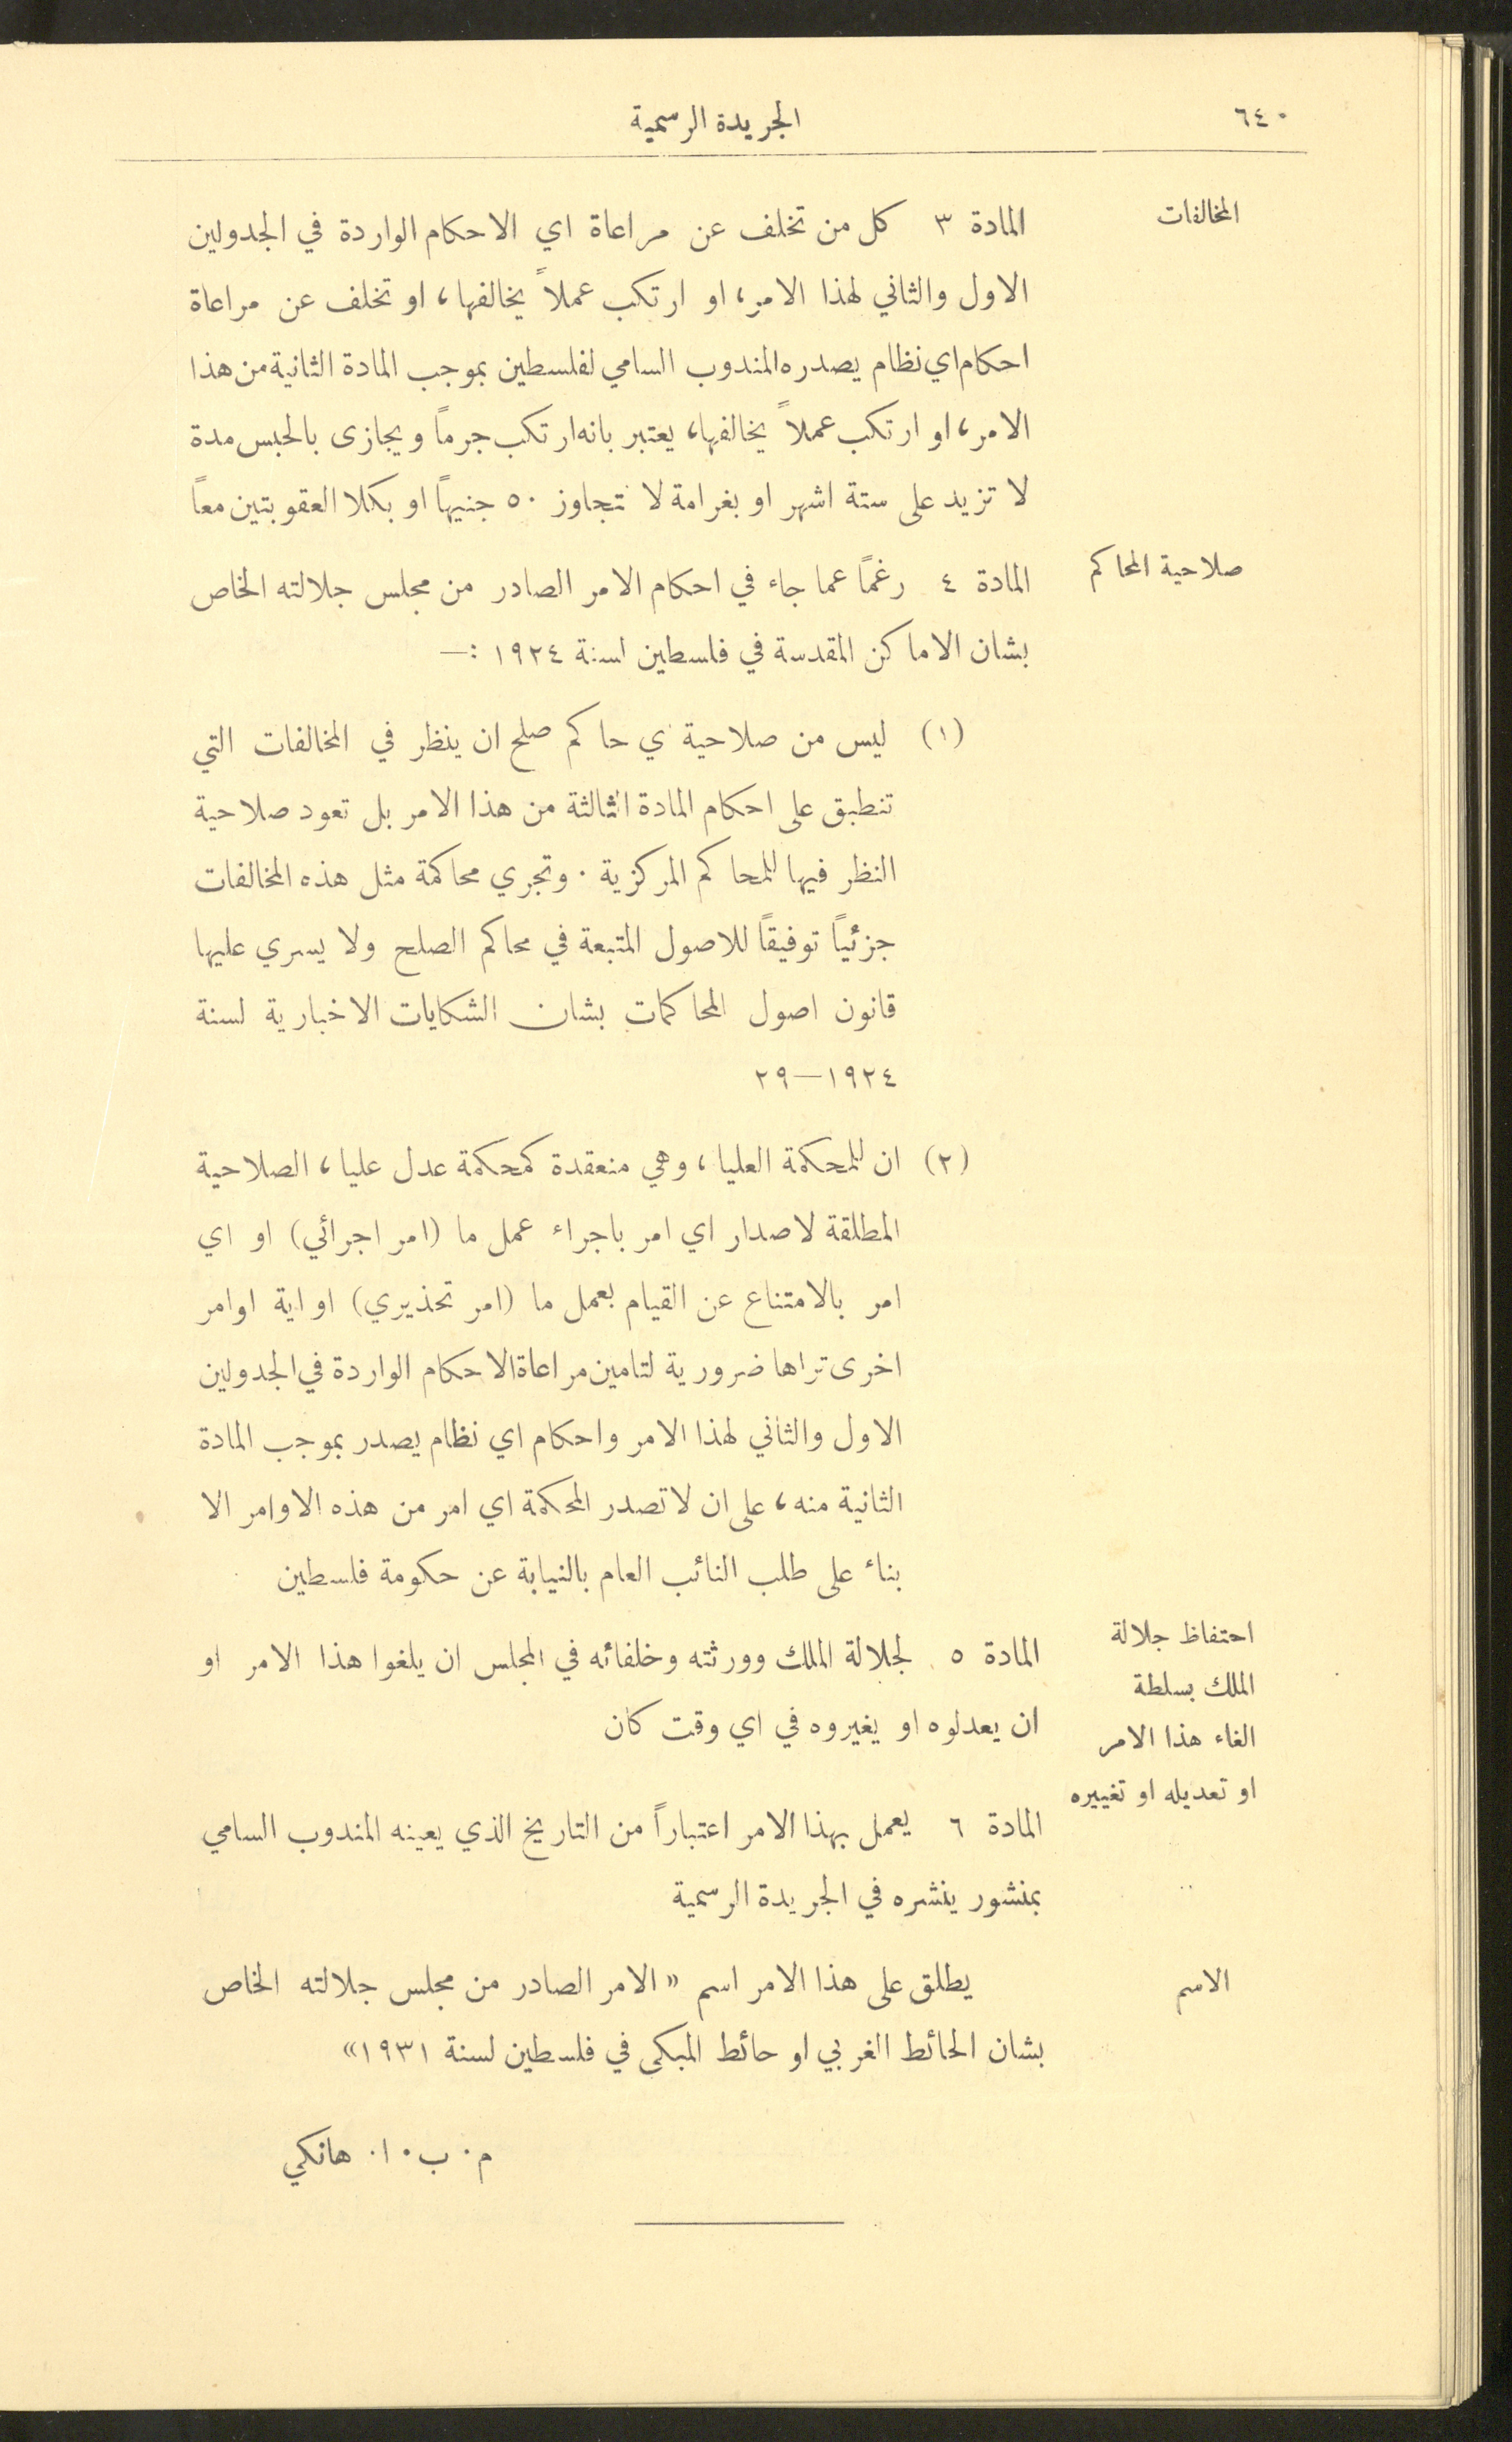 ٦٤٠
الجريدة الرسمية
المخالفات
المادة ٣ كل من تخلف عن مراعاة اي الاحكام الواردة في الجدولين
الاول والثاني لهذا الامر، او ارتكب عملاً يخالفها، او تخلف عن مراعاة
احكام اي نظام يصدره المندوب السامي لفلسطين بموجب المادة الثانية من هذا
الامر، او ارتكب عملاً يخالفها، يعتبر بانه ارتكب جرماً ويجازى بالحبس مدة
لا تزيد على ستة اشهر او بغرامة لا تتجاوز ٥٠ جنيهاً او بكلا العقوبتين معاً
صلاحية المحاكم
المادة ٤ رغماً عما جاء في احكام الامر الصادر من مجلس جلالته الخاص
بشان الاماكن المقدسة في فلسطين لسنة ١٩٢٤ :—
(١) ليس من صلاحية ي حاكم صلح ان ينظر في المخالفات التي
تنطبق على احكام المادة الثالثة من هذا الامر بل تعود صلاحية
النظر فيها للمحاكم المركزية . وتجري محاكمة مثل هذه المخالفات
جزئياً توفيقاً للاصول المتبعة في محاكم الصلح ولا يسري عليها
قانون اصول المحاكمات بشان الشكايات الاخبارية لسنة
١٩٢٤—٢٩
(٢) ان للمحكمة العليا، وهي منعقدة كمحكمة عدل عليا، الصلاحية
المطلقة لاصدار اي امر باجراء عمل ما (امر اجرائي) او اي
امر بالامتناع عن القيام بعمل ما (امر تحذيري) او اية اوامر
اخرى تراها ضرورية لتامين مراعاة الاحكام الواردة في الجدولين
الاول والثاني لهذا الامر واحكام اي نظام يصدر بموجب المادة
الثانية منه، على ان لا تصدر المحكمة اي امر من هذه الاوامر الا
بناء على طلب النائب العام بالنيابة عن حكومة فلسطين
احتفاظ جلالة
الملك بسلطة
الغاء هذا الامر
او تعديله او تغييره
المادة ٥ لجلالة الملك وورثته وخلفائه في المجلس ان يلغوا هذا الامر او
ان يعدلوه او يغيروه في اي وقت كان
المادة ٦ يعمل بهذا الامر اعتباراً من التاريخ الذي يعينه المندوب السامي
بمنشور ينشره في الجريدة الرسمية
الاسم
يطلق على هذا الامر اسم « الامر الصادر من مجلس جلالته الخاص
بشان الحائط الغربي او حائط المبكى في فلسطين لسنة ١٩٣١»
م. ب. ا. هانكي